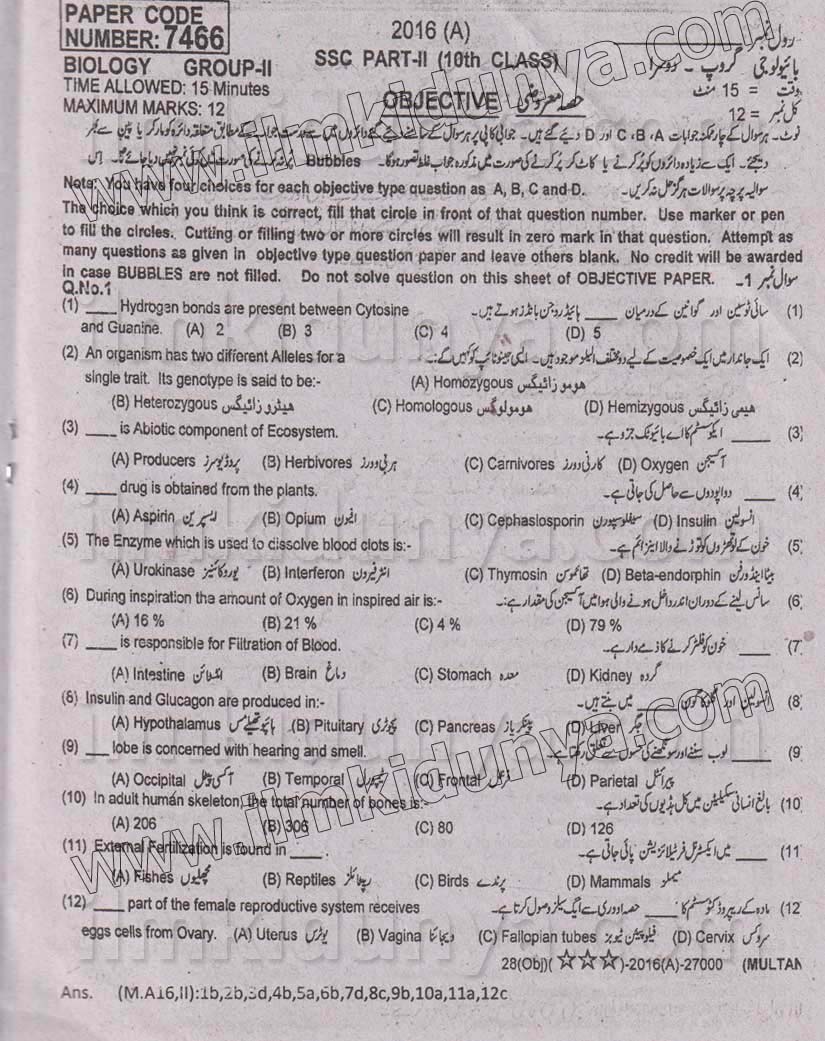 PAPER CODE
NUMBER: 7466
2016 (A)
رول نمبر
BIOLOGY GROUP-II
SSC PART-II (10th CLASS)
بائیولوجی گروپ ۔ دوسرا
TIME ALLOWED: 15 Minutes
وقت = 15 منٹ
MAXIMUM MARKS: 12
OBJECTIVE حصہ معروضی
کل نمبر = 12
نوٹ۔ ہر سوال کے چار ممکنہ جوابات A، B، C اور D دیئے گئے ہیں۔ جوابی کاپی پر ہر سوال کے سامنے دیئے گئے دائروں میں سے درست جواب کے مطابق متعلقہ دائرہ کو مارکر یا پین سے بھر
دیجئے۔ ایک سے زیادہ دائروں کو پُر کرنے یا کاٹ کر پُر کرنے کی صورت میں مذکورہ جواب غلط تصور ہوگا۔ Bubbles پُر نہ کرنے کی صورت میں کوئی نمبر نہیں دیا جائے گا۔ اس
Note: You have four choices for each objective type question as A, B, C and D. سوالیہ پرچہ پر سوالات ہرگز حل نہ کریں۔
The choice which you think is correct, fill that circle in front of that question number. Use marker or pen
to fill the circles. Cutting or filling two or more circles will result in zero mark in that question. Attempt as
many questions as given in objective type question paper and leave others blank. No credit will be awarded
in case BUBBLES are not filled. Do not solve question on this sheet of OBJECTIVE PAPER. سوال نمبر 1۔
Q.No.1
(1) ____ Hydrogen bonds are present between Cytosine سائی ٹوسین اور گوانین کے درمیان ____ ہائیڈروجن بانڈز ہوتے ہیں۔ (1)
and Guanine. (A) 2 (B) 3 (C) 4 (D) 5
(2) An organism has two different Alleles for a ایک جاندار میں ایک خصوصیت کے لیے دو مختلف الیلز موجود ہیں۔ ایسی جینوٹائپ کو کہیں گے:۔ (2)
single trait. Its genotype is said to be:- (A) Homozygous ہوموزائیگس
(B) Heterozygous ہیٹروزائیگس (C) Homologous ہومولوگس (D) Hemizygous ہیمی زائیگس
(3) ____ is Abiotic component of Ecosystem. ____ ایکوسسٹم کا اے بائیوٹک جزو ہے۔ (3)
(A) Producers پروڈیوسرز (B) Herbivores ہربی وورز (C) Carnivores کارنی وورز (D) Oxygen آکسیجن
(4) ____ drug is obtained from the plants. ____ دوا پودوں سے حاصل کی جاتی ہے۔ (4
(A) Aspirin ایسپرین (B) Opium افیون (C) Cephaslosporin سیفلوسپورن (D) Insulin انسولین
(5) The Enzyme which is used to dissolve blood clots is:- خون کے لوتھڑوں کو توڑنے والا اینزائم ہے۔ (5
(A) Urokinase یوروکائنیز (B) Interferon انٹرفیرون (C) Thymosin تھائموسن (D) Beta-endorphin بیٹا اینڈورفن
(6) During inspiration the amount of Oxygen in inspired air is:- سانس لینے کے دوران اندر داخل ہونے والی ہوا میں آکسیجن کی مقدار ہے:۔ (6
(A) 16 % (B) 21 % (C) 4 % (D) 79 %
(7) ____ is responsible for Filtration of Blood. ____ خون کو فلٹر کرنے کا ذمے دار ہے۔ (7
(A) Intestine انٹسٹائن (B) Brain دماغ (C) Stomach معدہ (D) Kidney گردہ
(8) Insulin and Glucagon are produced in:- انسولین اور گلوکاگون ____ میں بنتے ہیں۔ (8
(A) Hypothalamus ہائپوتھیلمس (B) Pituitary پچوٹری (C) Pancreas پینکریاز (D) Liver جگر
(9) ____ lobe is concerned with hearing and smell. ____ لوب سننے اور سونگھنے کی حسوں سے تعلق رکھتا ہے۔ (9
(A) Occipital آکسی پیٹل (B) Temporal ٹیمپورل (C) Frontal فرنٹل (D) Parietal پیرائٹل
(10) In adult human skeleton, the total number of bones is:- بالغ انسانی سکیلیٹن میں کل ہڈیوں کی تعداد ہے۔ (10
(A) 206 (B) 306 (C) 80 (D) 126
(11) External Fertilization is found in ____. ____ میں ایکسٹرنل فرٹیلائزیشن پائی جاتی ہے۔ (11
(A) Fishes مچھلیوں (B) Reptiles ریپٹائلز (C) Birds پرندے (D) Mammals میملز
(12) ____ part of the female reproductive system receives مادہ کے ریپروڈکٹو سسٹم کا ____ حصہ اووری سے ایگ سیلز وصول کرتا ہے۔ (12
eggs cells from Ovary. (A) Uterus یوٹرس (B) Vagina ویجائنا (C) Fallopian tubes فیلوپیئن ٹیوبز (D) Cervix سروکس
28(Obj)(☆☆☆)-2016(A)-27000 (MULTAN
Ans. (M.A16,II):1b,2b,3d,4b,5a,6b,7d,8c,9b,10a,11a,12c
www.ilmkidunya.com
www.ilmkidunya.com
ilmkidunya.com
ilmkidunya.com
ilmkidunya.com
ilmkidunya.com